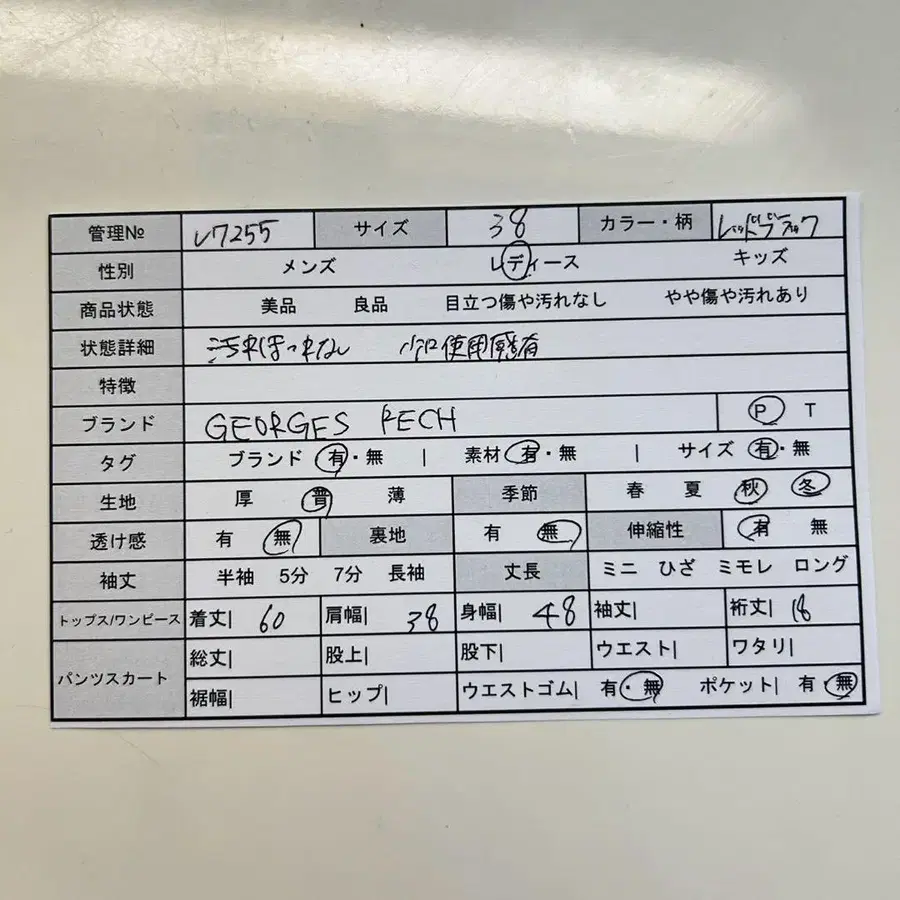 管理№ レ7255 サイズ 38 カラー・柄 レッドブラック
性別 メンズ レディース キッズ
商品状態 美品 良品 目立つ傷や汚れなし やや傷や汚れあり
状態詳細 汚れほつれなし 使用感有
特徴
ブランド GEORGES RECH P T
タグ ブランド 有・無 | 素材 有・無 | サイズ 有・無
生地 厚 普 薄 季節 春 夏 秋 冬
透け感 有 無 裏地 有 無 伸縮性 有 無
袖丈 半袖 5分 7分 長袖 丈長 ミニ ひざ ミモレ ロング
トップス/ワンピース 着丈| 60 肩幅| 38 身幅| 48 袖丈| 裄丈| 18
パンツスカート 総丈| 股上| 股下| ウエスト| ワタリ|
裾幅| ヒップ| ウエストゴム| 有・無 ポケット| 有・無